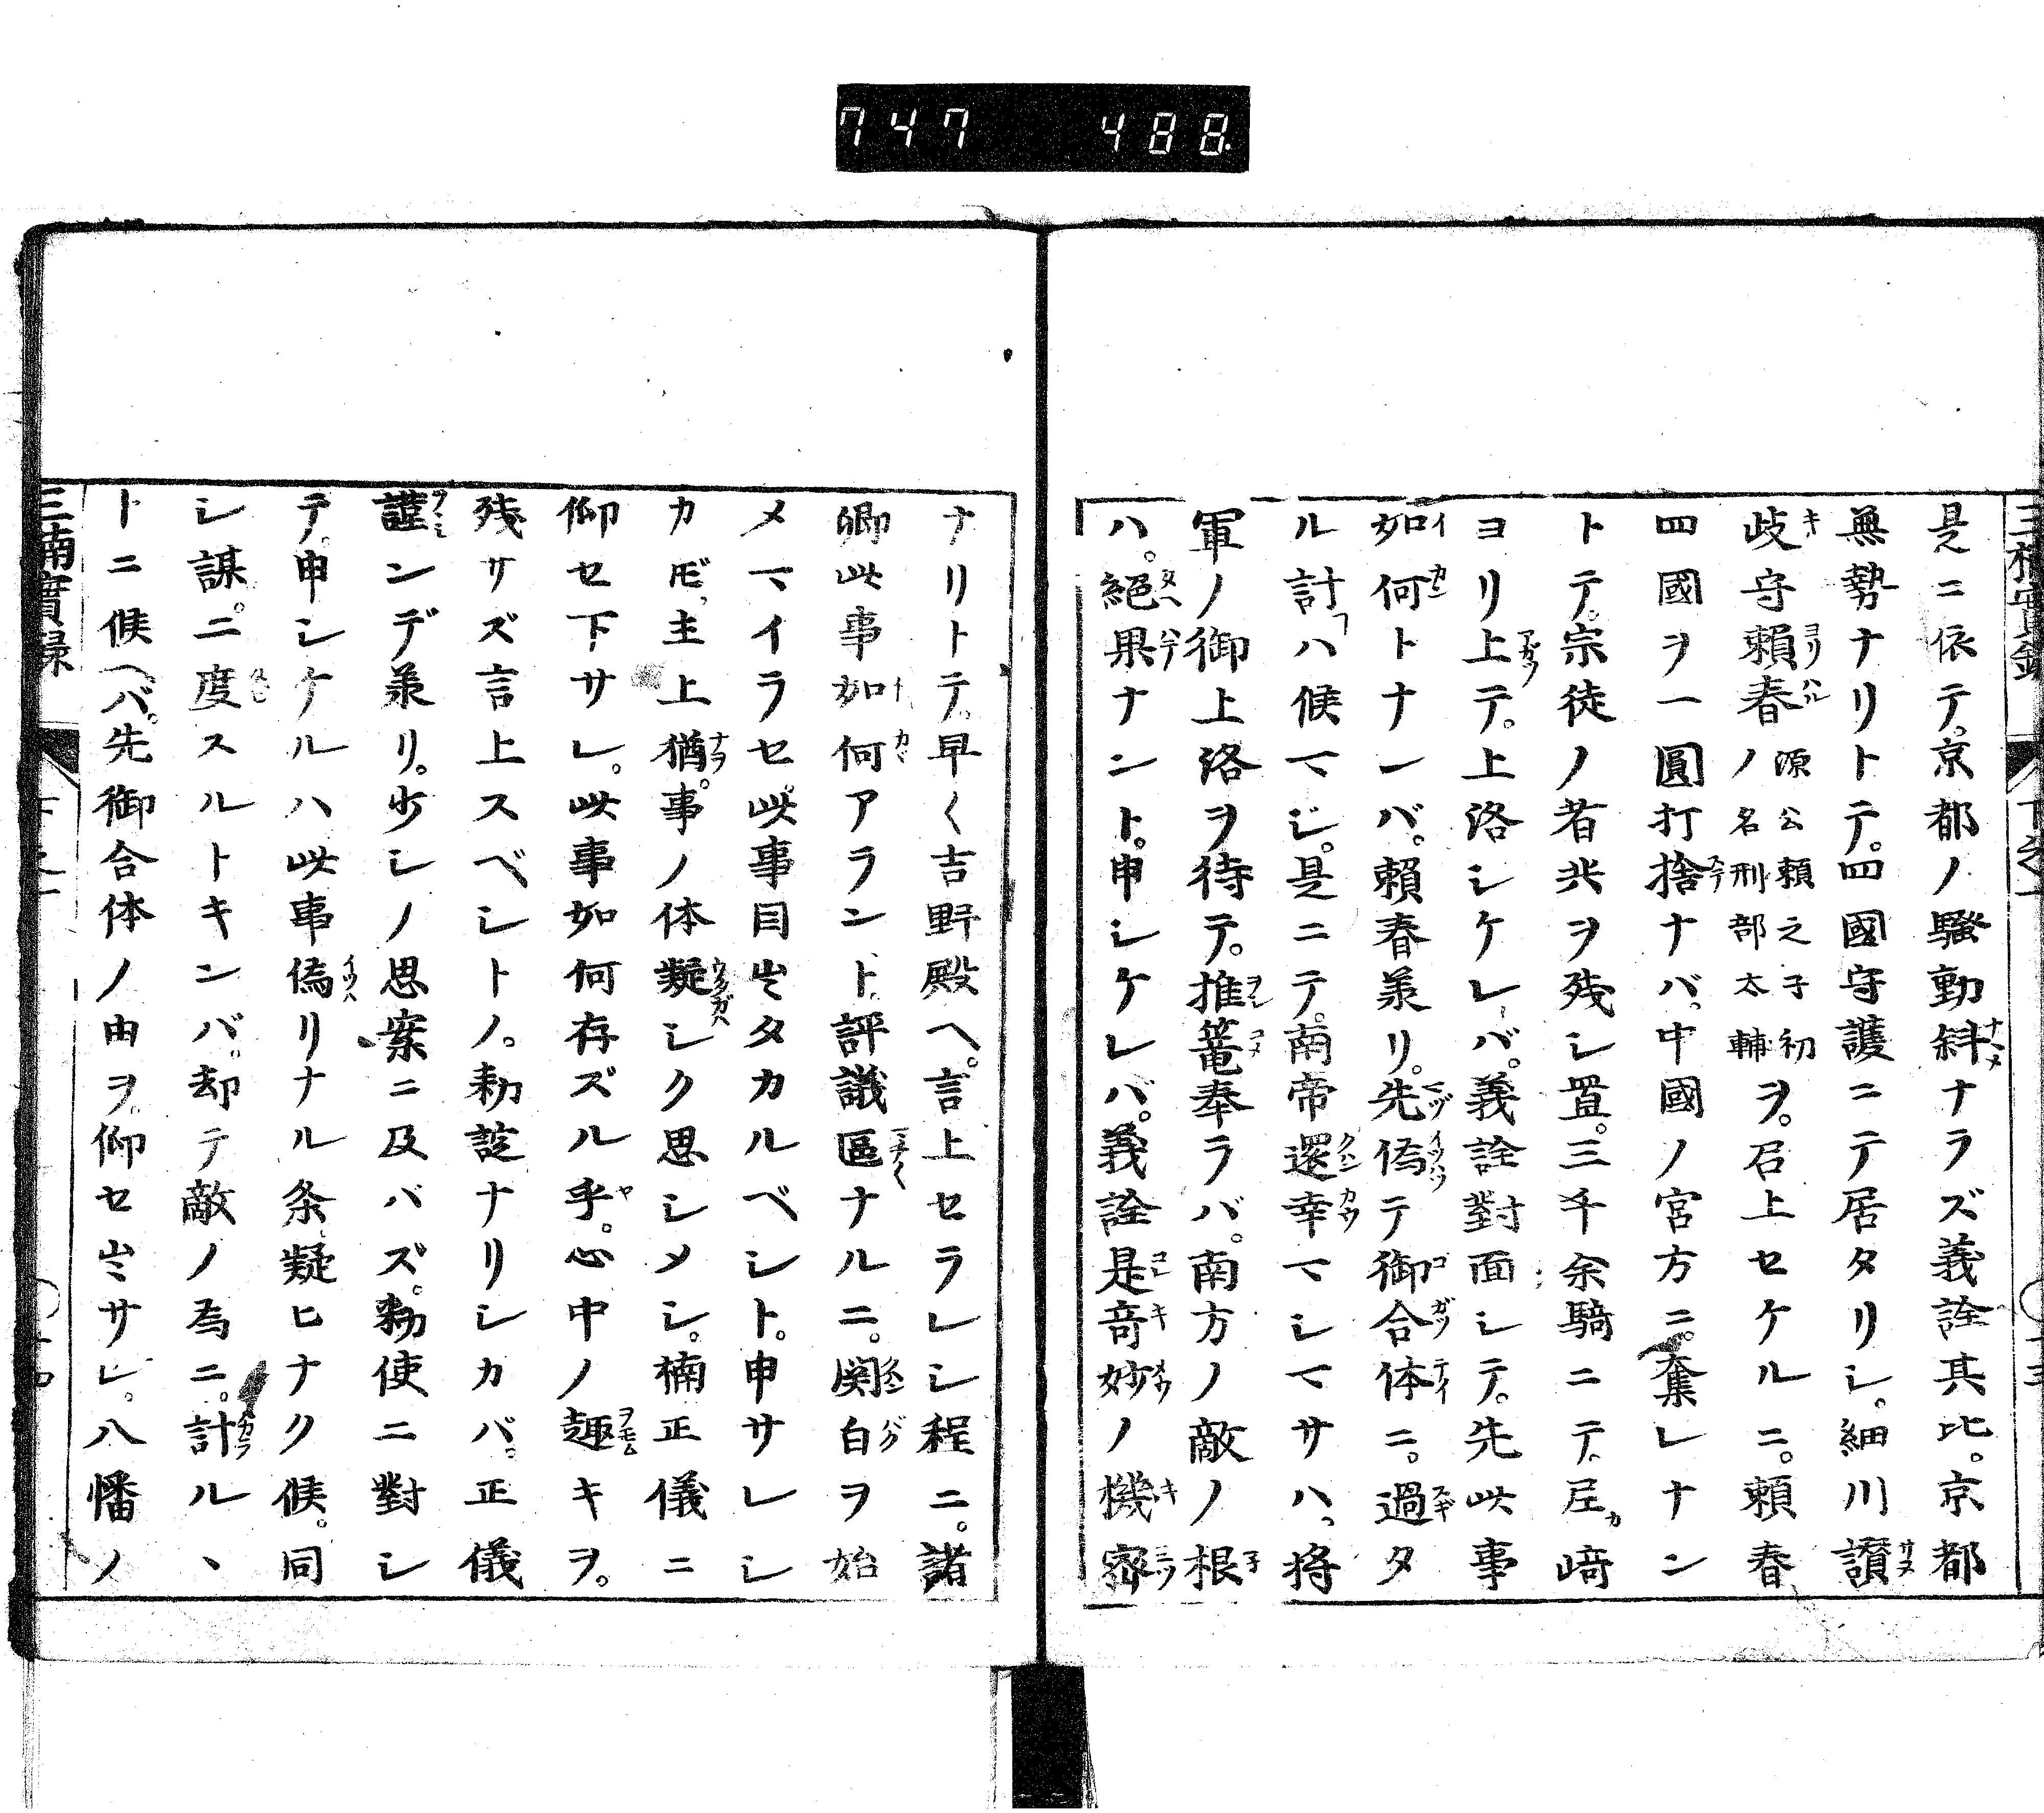 747 488
是ニ依テ。京都ノ騒動斜ナラズ義詮其比。京都
無勢ナリトテ。四國守護ニテ居タリシ。細川讃
岐守頼春 源公頼之子初ノ名刑部太輔 ヲ。召上セケルニ。頼春
四國ヲ一圓打捨ナバ。中國ノ宮方ニ。奪レナン
トテ。宗徒ノ者共ヲ残シ置。三千余騎ニテ。尼﨑
ヨリ上テ。上洛シケレバ。義詮對面シテ。先此事
如何トナレバ。頼春兼リ。先偽テ御合体ニ。過タ
ル計ヿハ候マジ。是ニテ。南帝還幸マシマサハ。將
軍ノ御上洛ヲ待テ。推篭奉ラバ。南方ノ敵ノ根
ハ。絕果ナント。申シケレバ。義詮是竒妙ノ機密
ナリトテ。早く吉野殿ヘ。言上セラレシ程ニ。諸
卿此事如何アラント。評議區ナルニ。関白ヲ始
メマイラセ。此事目出タカルベシト。申サレシ
カ𪜈、主上猶。事ノ体疑シク思シメシ。楠正儀ニ
仰セ下サレ。此事如何存ズル乎。心中ノ趣キヲ。
残サズ言上スベシトノ。勅諚ナリシカバ。正儀
謹ンデ兼リ。少シノ思案ニ及バズ。勅使ニ對シ
テ。申シケルハ此事偽リナル条疑ヒナク候。同
シ謀。二度スルトキンバ。却テ敵ノ為ニ。計ルヽ
トニ候ヘバ。先御合体ノ由ヲ。仰セ出サレ。八幡ノ